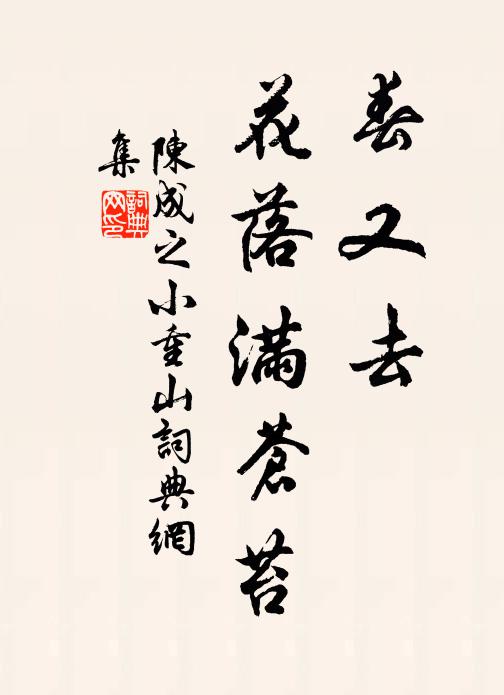 春又去
花落满蒼苔
陳成之小重山詞典網
集
詞典
网印